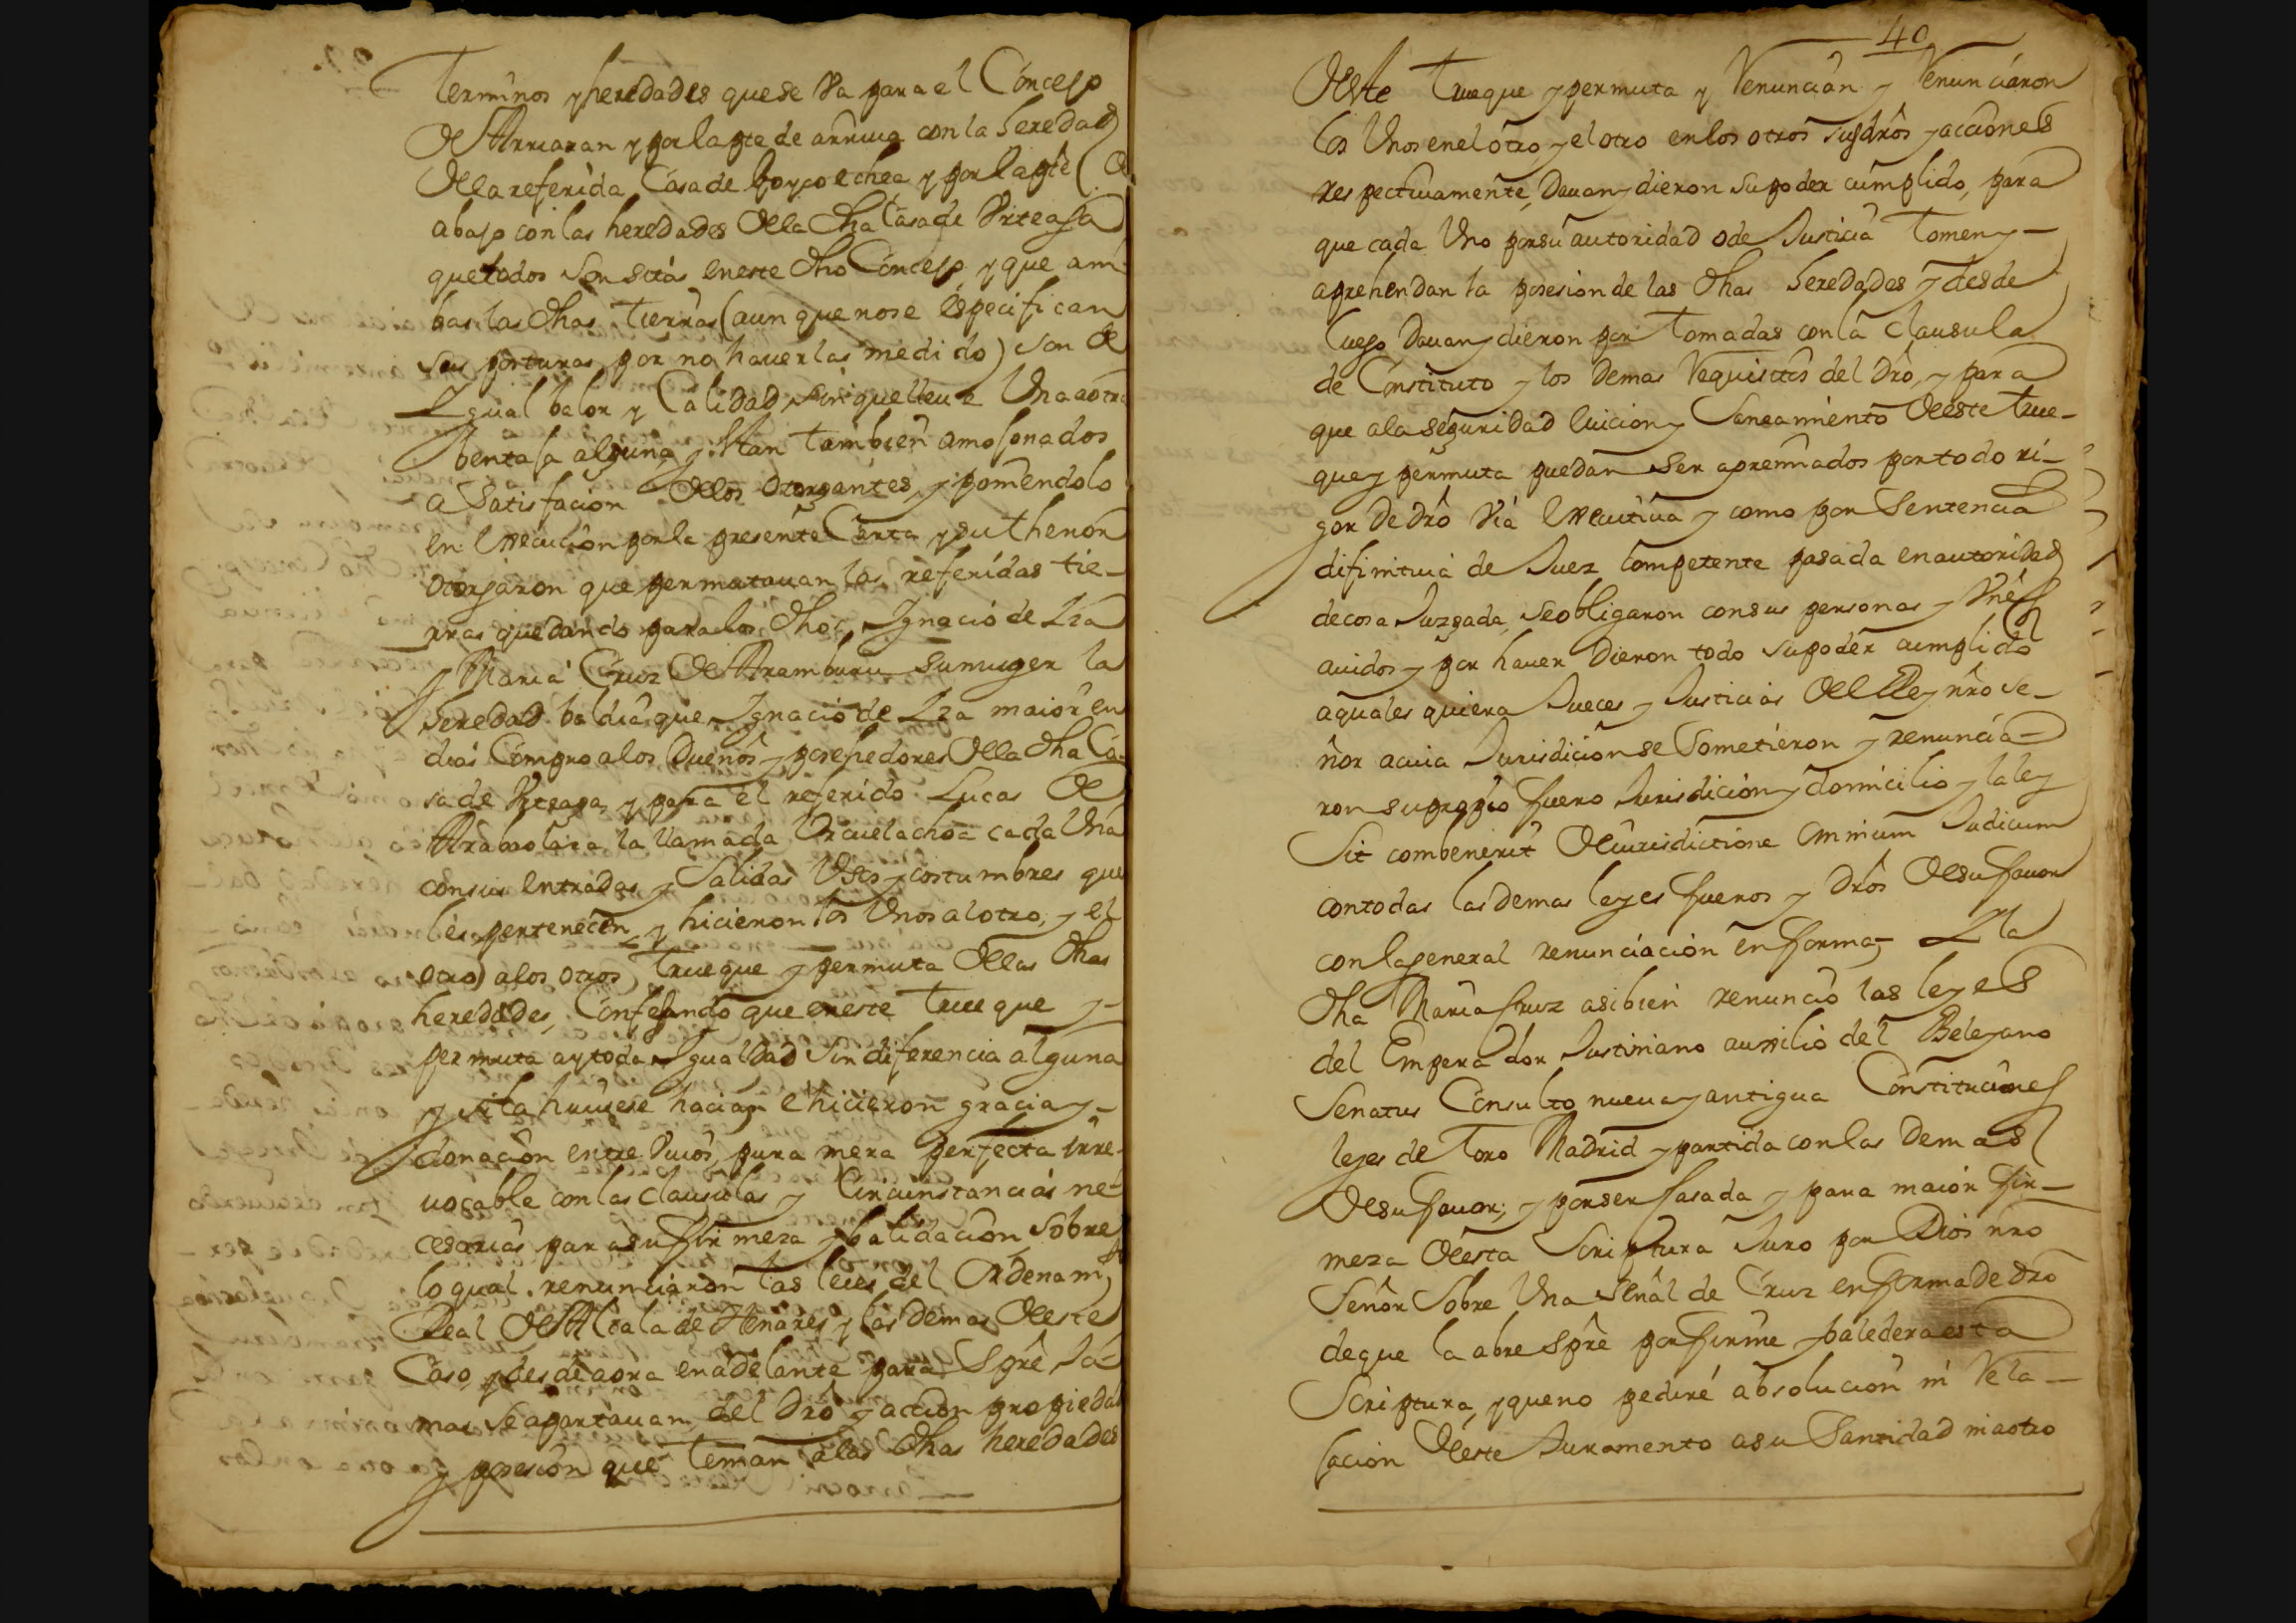 terminos y heredades que se va para el Concejo
de Arriaran y por la pte de arriua con la heredad
de la referida Casa de Goycoechea y por la pte de
abajo con las heredades de la dha Casa de Vrteaga
que todos son sitas en este dho Concejo y que am
bas las dhas tierras (aunque no se especifican
sus posturas por no hauerlas medido) son de
Igual balor y Calidad sin que lleue Una a otra
bentaja alguna y stan tambien amojonados
a satisfacion de los otorgantes, y poniendolo
en execucion por la presente Carta y su thenor
otorgaron que permutauan las referidas tie-
rras quedando para los dhos Ignacio de Iza
y Maria Cruz de Aramburu su muger la
heredad baldia que Ignacio de Iza maior en
dias Compro a los Dueños y posehedores de la dha Ca-
sa de Vrteaga, y para el referido Lucas de
la llamada cada Una
con sus entradas y Salidas Usos y costumbres que
les pertenecen y hicieron los Unos al otro, y el
otro a los otros trueque y permuta de las dhas
heredades, Confesando que en este trueque y-
permuta ay toda Igualdad sin diferencia alguna
y si la huuiese hacian e hicieron gracia y-
donacion entre viuos, pura mera perfecta irre-
uocable con las clausulas y Circunstancias ne-
cesarias para su firmeza y balidacion sobre
lo qual renunciaron las leies del Ordenamto
Real de Alcala de Henares y las demas de este
Caso, y desde aora en adelante para Spre ja-
mas se apartauan del dro y accion propiedad
y posesion que tenian a las dhas heredades
40
deste trueque y permuta y renuncian y renunciaron
los Unos en el otro, y el otro en los otros sus dros y acciones
respectiuamente, Dauan y dieron su poder cumplido, para
que cada Uno por su autoridad o de Justicia tomen y-
aprehendan la posesion de las dhas heredades y desde
luego Dauan y dieron por tomadas con la Clausula
de Constituto y los Demas requisitos del dro, y para
que a la seguridad euicion y Saneamiento deeste true-
que y permuta puedan ser apremiados por todo ri-
gor de dro via executiua y como por Sentencia
difinitiua de Juez competente pasada en autoridad
de cosa Juzgada, se obligaron con sus personas y vnes
auidos y por hauer Dieron todo su poder cumplido
a quales quiera Jueces y Justicias del Rey nro se-
ñor a cuia Jurisdicion se sometieron y renuncia-
ron su propio fuero Jurisdicion y domicilio y la ley
Sit conbenerit de iurisdictione omnium Judicum
con todas las demas leyes fueros y dros de su fauor
con la general renunciacion en forma, y la
dha Maria Cruz asi bien renuncio las leyes
del Emperador Justiniano auxilio del Beleyano
Senatus Consulto nueua y antigua Constituciones
leyes de Toro Madrid y partida con las Demas
de su fauor; y por ser casada y para maior fir-
meza desta Scriptura Juro por Dios nro
Señor Sobre Una señal de Cruz en forma de dro
de que la abre spre por firme y baledera esta
Scriptura, y que no pediré absolucion ni rela-
jacion deeste Juramento a su Santidad ni a otro